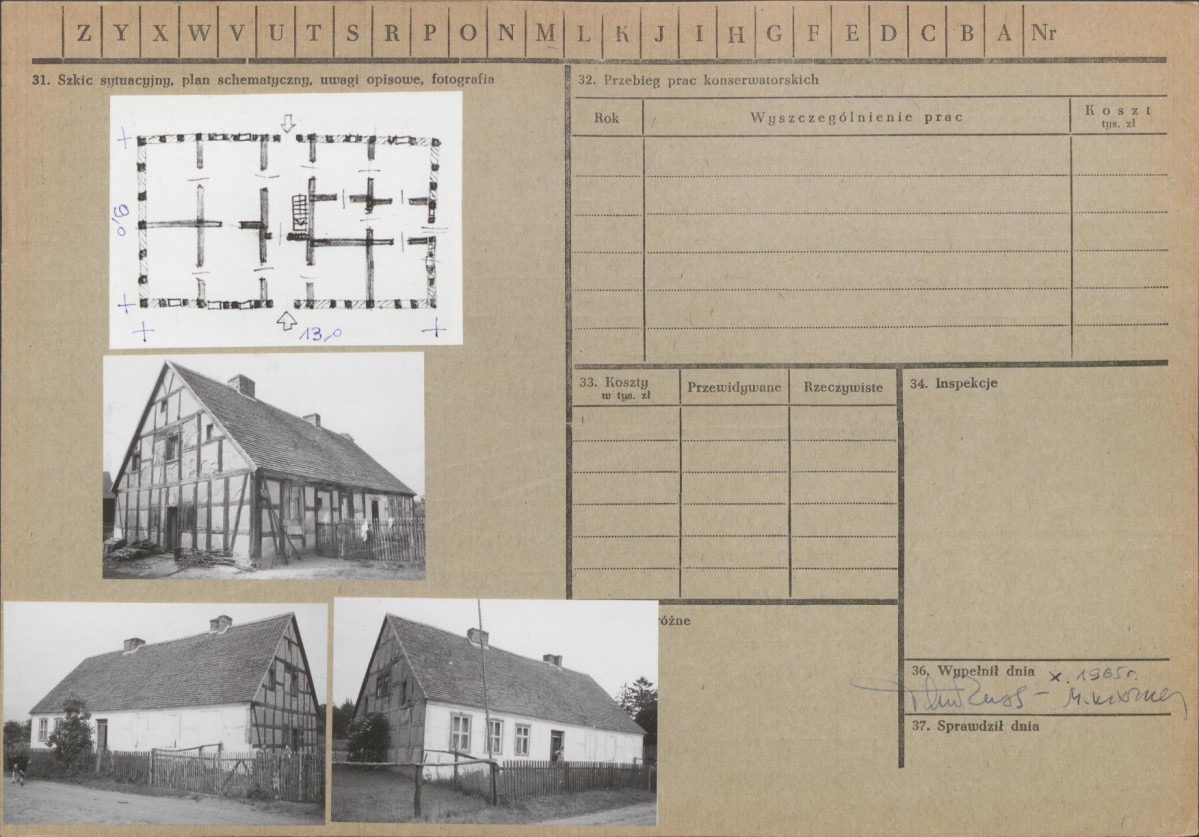 Z Y X W V U T S R P O N M L K J I H G F E D C B A Nr
31. Szkic sytuacyjny, plan schematyczny, uwagi opisowe, fotografia
9,0
13,0
32. Przebieg prac konserwatorskich
Rok
Wyszczególnienie prac
Koszt
tys. zł
33. Koszty
w tys. zł
Przewidywane
Rzeczywiste
34. Inspekcje
różne
36. Wypełnił dnia x. 1965 r.
37. Sprawdził dnia